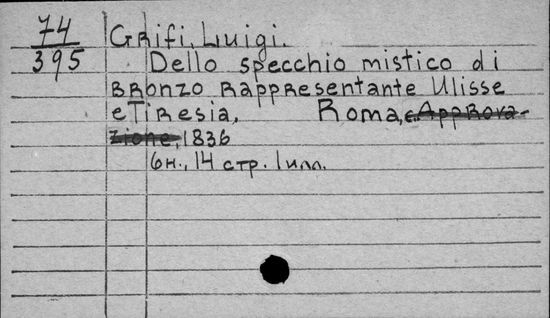 74
395
Grifi, Luigi.
Dello specchio mistico di
Bronzo Rappresentante Ulisse
e Tiresia, Roma, c. Approva-
zione, 1836
6н., 14 стр. 1 илл.